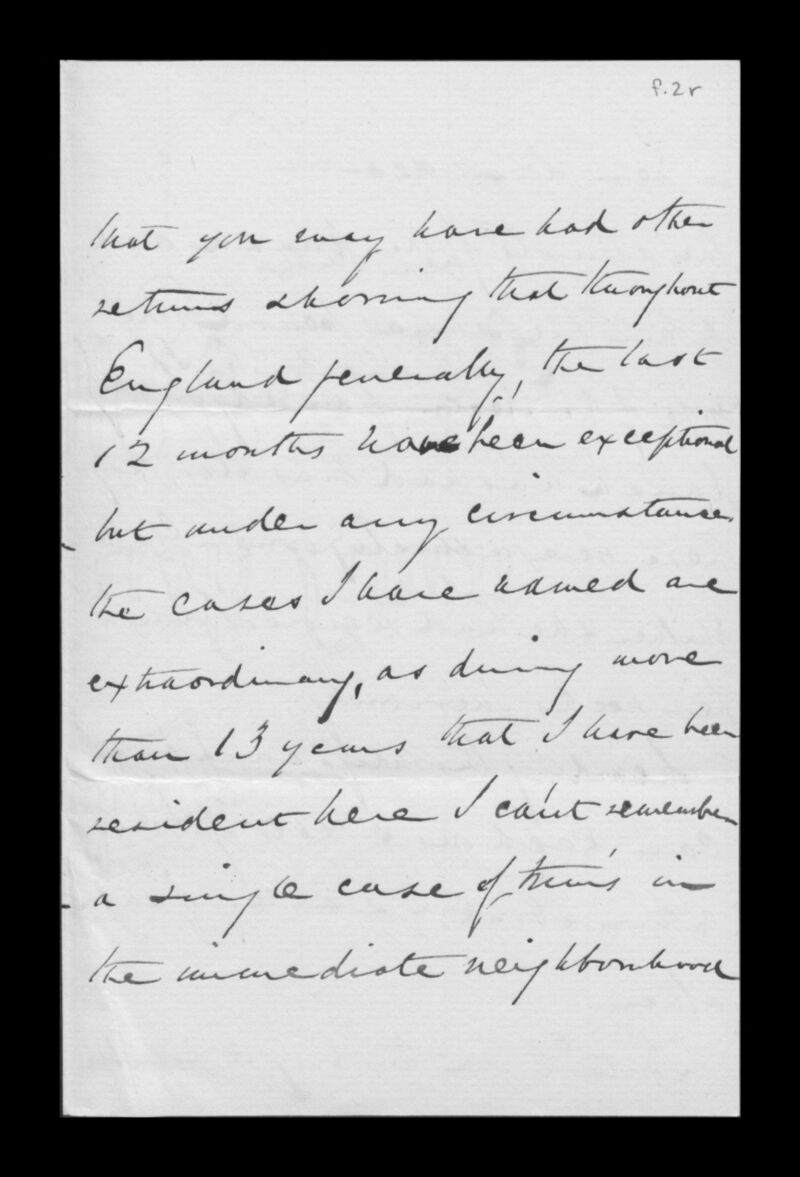 f.2r
that you may have had other
returns shewing that throughout
England generally, the last
12 months have been exceptional
but under any circumstances
the cases I have named are
extraordinary, as during more
than 13 years that I have been
resident here I can't remember
a single case of twins in
the immediate neighbourhood